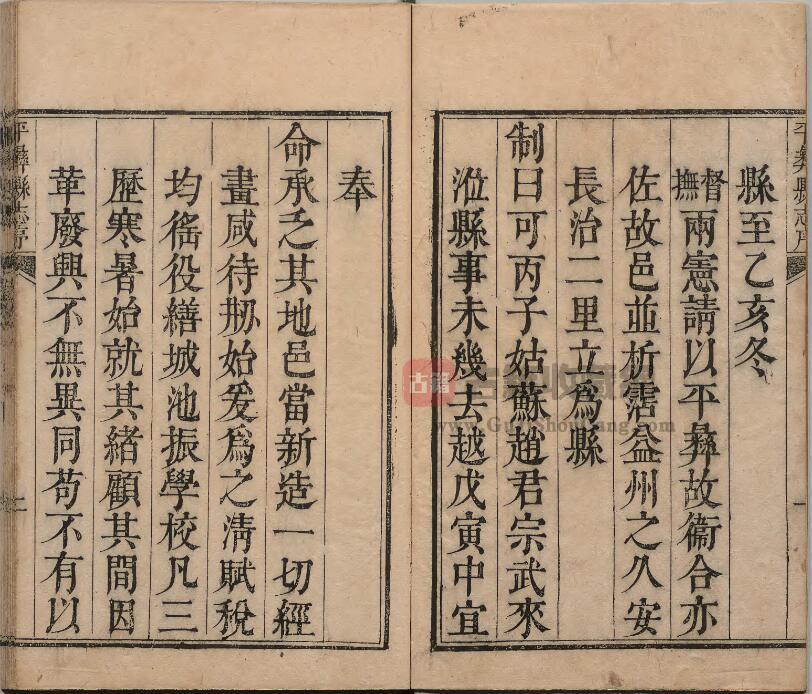 縣至乙亥冬
督撫兩憲請以平彝故衞合亦
佐故邑並析霑益州之久安
長治二里立爲縣
制曰可丙子姑蘇趙君宗武來
涖縣事未幾去越戊寅中宜
奉
命承乏其地邑當新造一切經
畫咸待刱始爰爲之淸賦稅
均徭役繕城池振學校凡三
歷寒暑始就其緒顧其間因
革廢興不無異同苟不有以
平彝縣志序
一
平彝縣志序
二
古籍
www.GujiShouCang.com